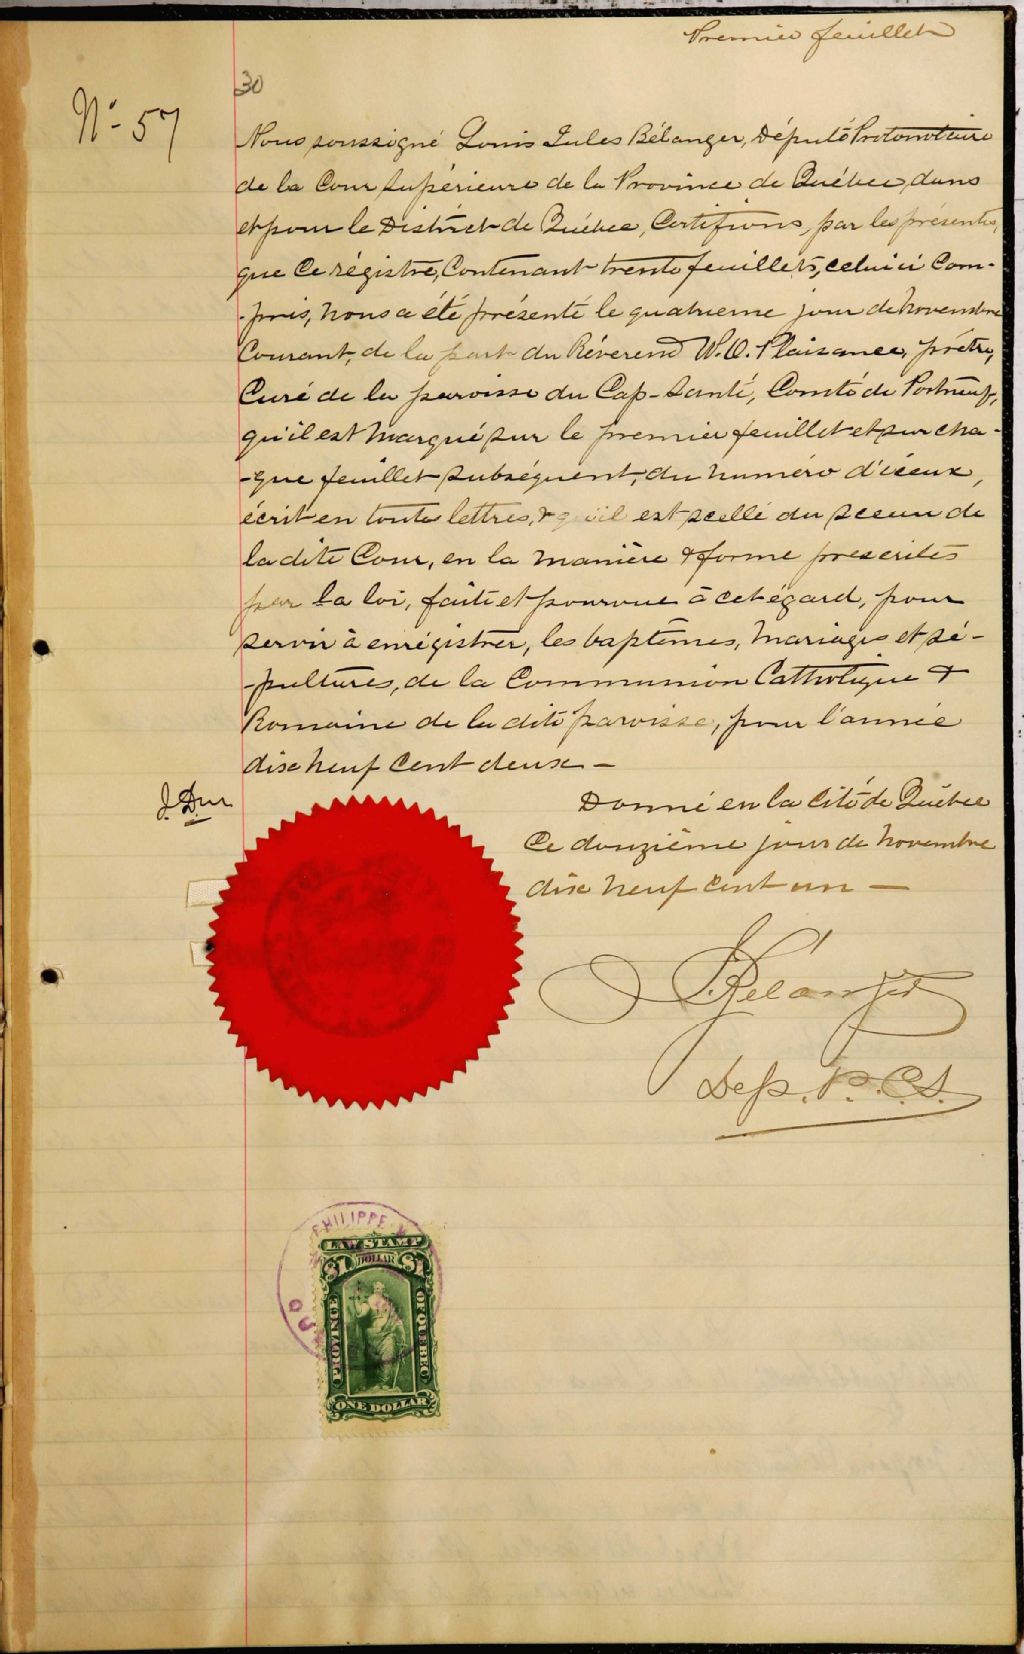 Premier feuillet
30
No 57
Nous soussigné Louis Jules Bélanger, Député Protonotaire
de la Cour Supérieure de la Province de Québec, dans
et pour le District de Québec, Certifions, par les présentes,
que Ce régistre, Contenant trente feuillets, celui ci Com-
-pris, nous a été présenté le quatrieme jour de Novembre
Courant, de la part du Réverend W. O. Plaisance, prêtre,
Curé de la paroisse du Cap-Santé, Comté de Portneuf,
qu'il est Marqué sur le premier feuillet et sur cha-
-que feuillet subséquent, du numéro d'iceux,
écrit en toutes lettres, & qu'il est scellé du sceau de
la dite Cour, en la manière & forme prescrites
par la loi, faite et pourvue à cet égard, pour
servir à enrégistrer, les baptêmes, Mariages et sé-
-pultures, de la Communion Catholique &
Romaine de la dite paroisse, pour l'année
dix neuf Cent deux —
Donné en la Cité de Québec
Ce douzième jour de Novembre
dix neuf Cent un —
J. Bélanger
Dep. P. C. S.
PHILIPPE
LAW STAMP
$1 DOLLAR $1
PROVINCE OF QUEBEC
ONE DOLLAR